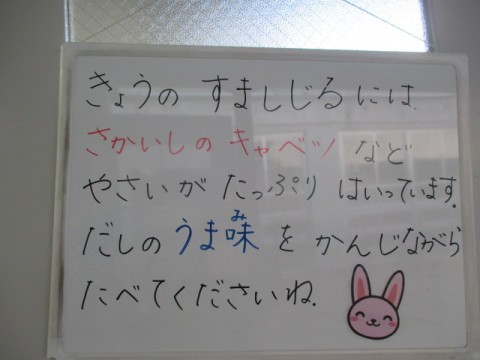 きょうの すましじるには.
さかいしの キャベツ など
やさいが たっぷり はいっています.
だしの うま味を かんじながら
み
たべてくださいね.